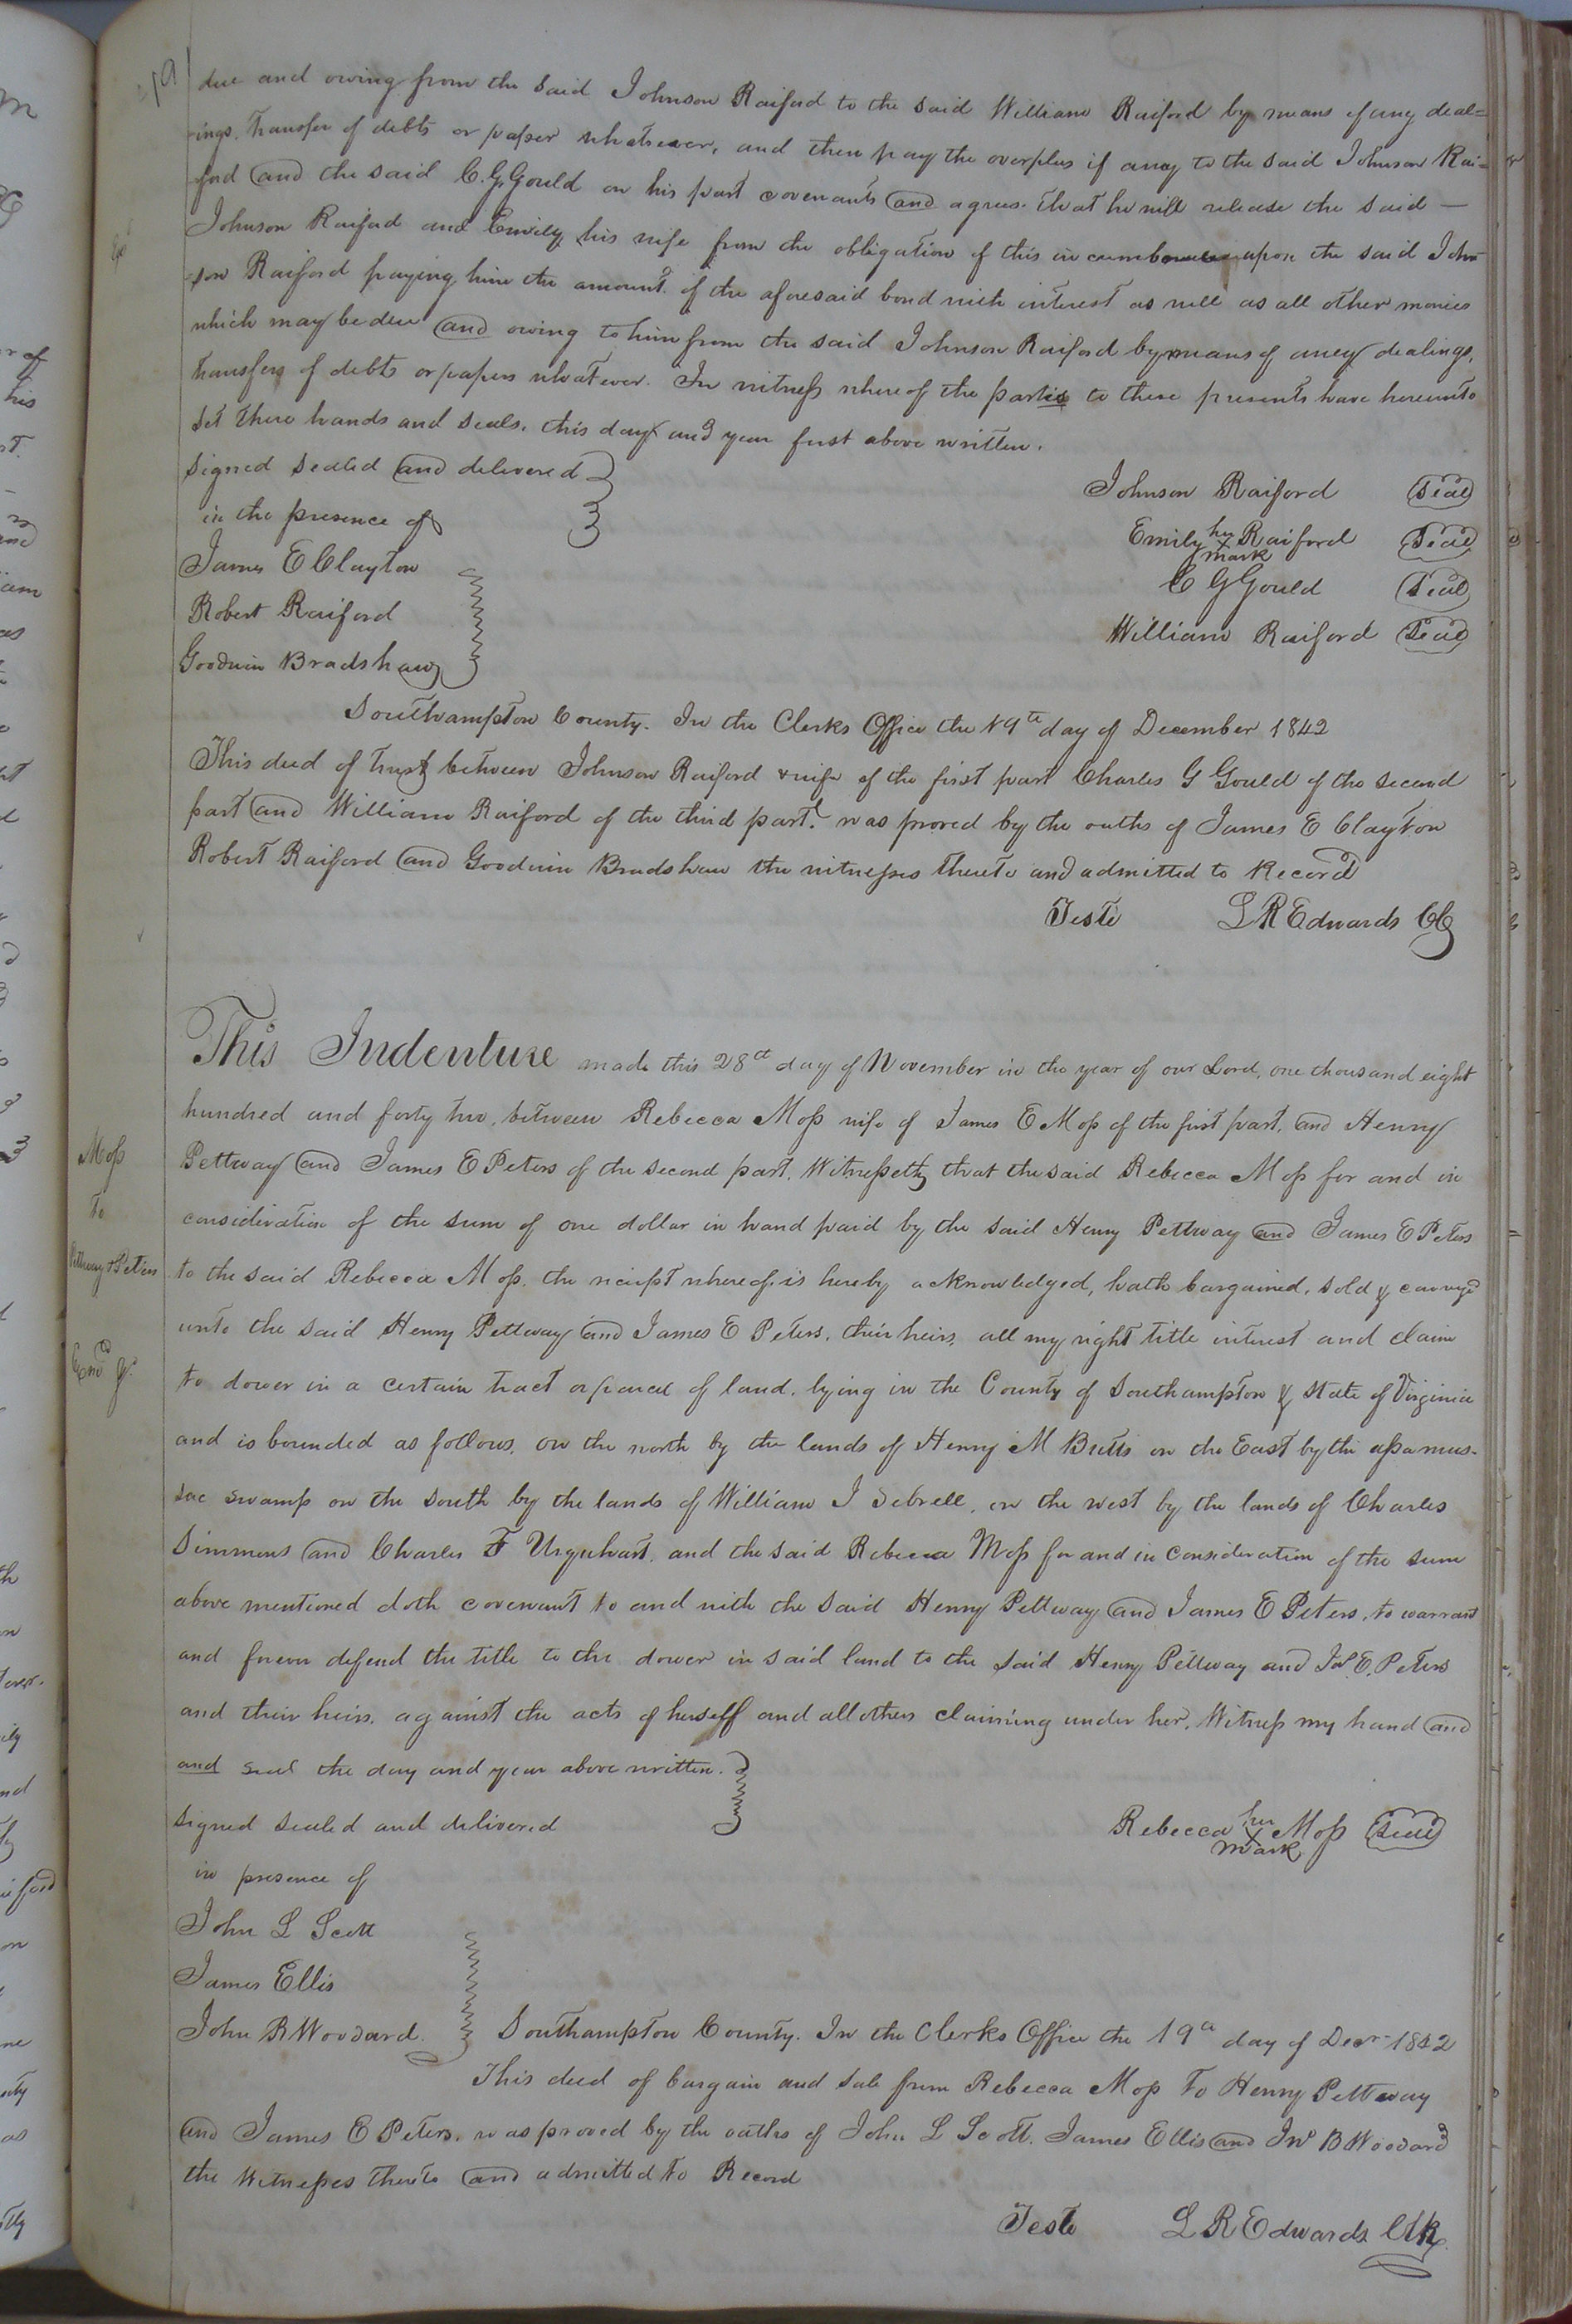 due and owing from the said Johnson Raiford to the said William Raiford by means of any deal=
-ings, transfer of debts or paper whatsoever, and then pay the overplus if any to the said Johnson Rai=
-ford and the said C. G. Gould on his part covenants and agrees that he will release the said —
Johnson Raiford and Emily his wife from the obligation of this incumbrance upon the said John
=son Raiford paying him the amount of the aforesaid bond with interest as well as all other monies
which may be due and owing to him from the said Johnson Raiford by means of any dealings,
transfers of debts or papers whatever. In witness whereof the parties to these presents have hereunto
set there hands and seals, this day and year first above written.
signed sealed and delivered
in the presence of
Johnson Raiford Seal
Emily her x mark Raiford Seal
C G Gould Seal
William Raiford Seal
James E Clayton
Robert Raiford
Goodwin Bradshaw
Southampton County. In the Clerks Office the 19th day of December 1842
This deed of trust between Johnson Raiford & wife of the first part Charles G Gould of the second
part and William Raiford of the third part. was proved by the oaths of James E Clayton
Robert Raiford and Goodwin Bradshaw the witnesses thereto and admitted to Record
Teste L R Edwards CC
Moss
to
Pettway & Peters
This Indenture made this 28th day of November in the year of our Lord, one thousand eight
hundred and forty two, between Rebecca Moss wife of James E Moss of the first part, and Henry
Pettway and James E Peters of the second part, Witnesseth that the said Rebecca Moss for and in
consideration of the sum of one dollar in hand paid by the said Henry Pettway and James E Peters
to the said Rebecca Moss, the receipt whereof is hereby acknowledged, hath bargained, sold & conveyd
unto the said Henry Pettway and James E Peters, their heirs, all my right title interest and claim
to dower in a certain tract or parcel of land, lying in the County of Southampton & State of Virginia
and is bounded as follows, on the north by the lands of Henry M Butts on the East by the assamus-
sac swamp on the south by the lands of William J Sebrell, on the west by the lands of Charles
Simmons and Charles F Urquhart, and the said Rebecca Moss for and in consideration of the sum
above mentioned doth covenant to and with the said Henry Pettway and James E Peters, to warrant
and forever defend the title to the dower in said land to the said Henry Pettway and Jas. E. Peters
and their heirs, against the acts of herself and all others claiming under her, Witness my hand and
and seal the day and year above written.
signed sealed and delivered
in presence of
Rebecca her x mark Moss Seal
John L Scott
James Ellis
John B Woodard
Southampton County. In the Clerks Office the 19th day of Decr 1842
This deed of bargain and sale from Rebecca Moss to Henry Pettway
and James E Peters, was proved by the oaths of John L Scott, James Ellis and Jno B Woodard
the witnesses thereto and admitted to Record
Teste L R Edwards Clk